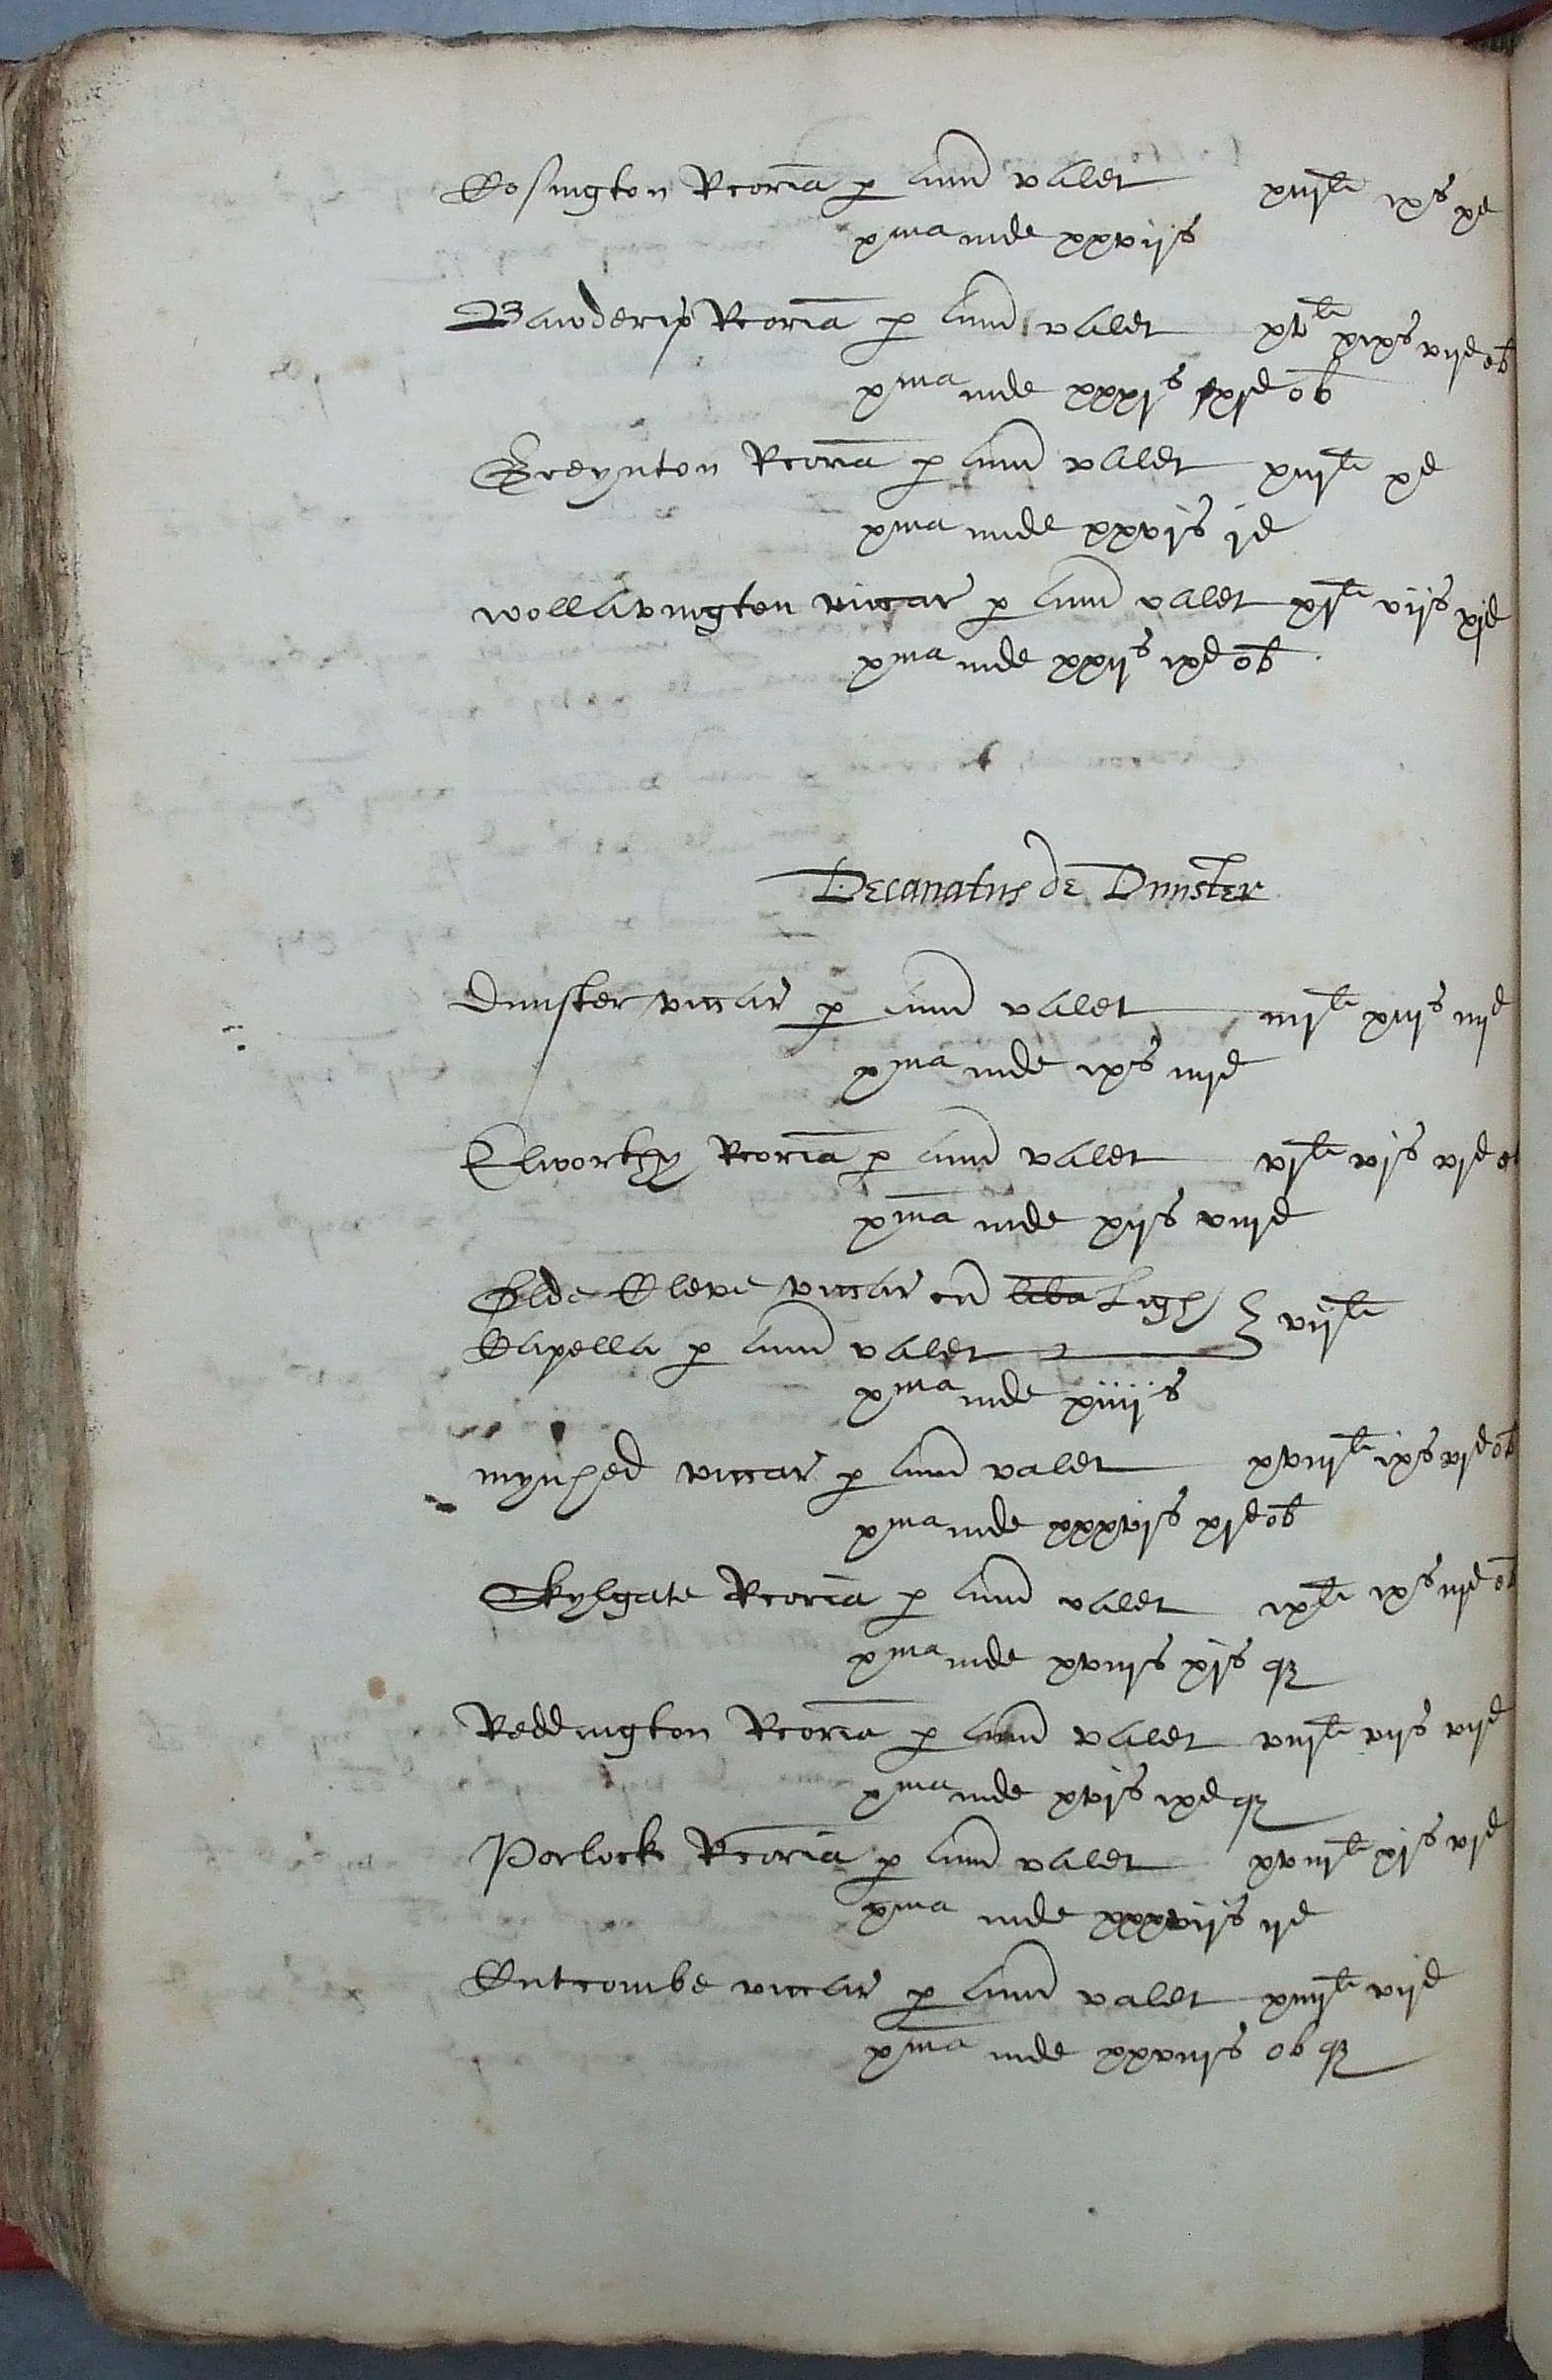 Cosington Rcoria p Ann valet xiijli ixs xd
xma inde xxvijs
Bawderip Rcoria p Ann valet xvli xixs vijd ob
xma inde xxxjs xjd ob
Greynton Rcoria p Ann valet xiijli xd
xma inde xxvjs jd
wollavington viccar p Ann valet xjli vijs xjd
xma inde xxijs ixd ob
Decanatus de Dunster
Dunster viccar p Ann valet iiijli xiijs iiijd
xma inde ixs iiijd
Elworthy Rcoria p Ann valet vjli vjs vjd o
xma inde xijs viijd
Olde Cleve viccar cu alba Ligh
Capella p Ann valet vijli
xma inde xiiijs
mynhed viccar p Ann valet xviijli ixs vjd ob
xma inde xxxvjs xjd ob
Skylgate Rcoria p Ann valet ixli ixs iijd ob
xma inde xviijs xjs q
Reddington Rcoria p Ann valet viijli vijs vijd
xma inde xvjs ixd q
Porlock Rcoria p Ann valet xviijli xjs vjd
xma inde xxxvijs ijd
Cutcombe viccar p Ann valet xiiijli vijd
xma inde xxviijs ob q